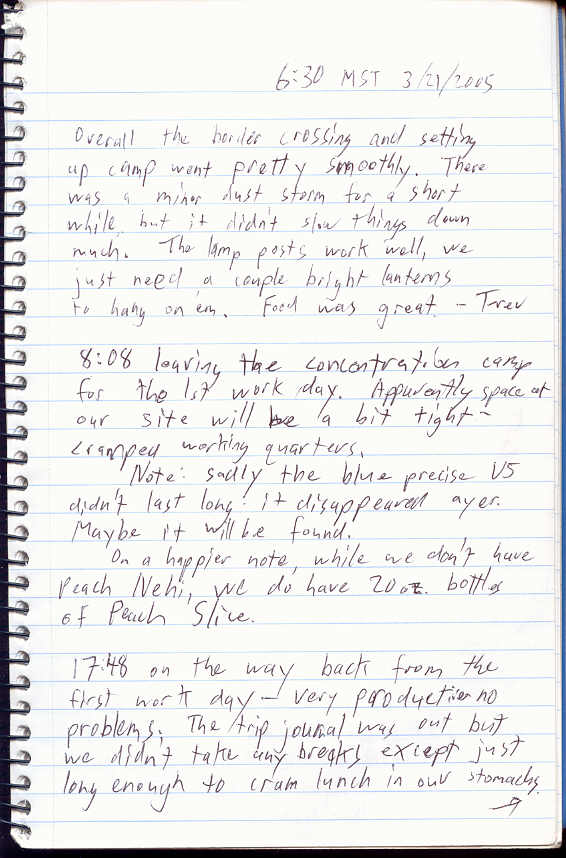 6:30 MST 3/21/2005
Overall the border crossing and setting
up camp went pretty smoothly. There
was a minor dust storm for a short
while, but it didn't slow things down
much. The lamp posts work well, we
just need a couple bright lanterns
to hang on 'em. Food was great - Trev
8:08 leaving the concentration camp
for the 1st work day. Apparently space at
our site will be a bit tight -
cramped working quarters.
Note: sadly the blue precise V5
didn't last long: it disappeared ayer.
Maybe it will be found.
On a happier note, while we don't have
Peach Nehi, we do have 20 oz. bottles
of Peach Slice.
17:48 on the way back from the
first work day - very productive no
problems. The trip journal was out but
we didn't take any breaks except just
long enough to cram lunch in our stomachs.
→